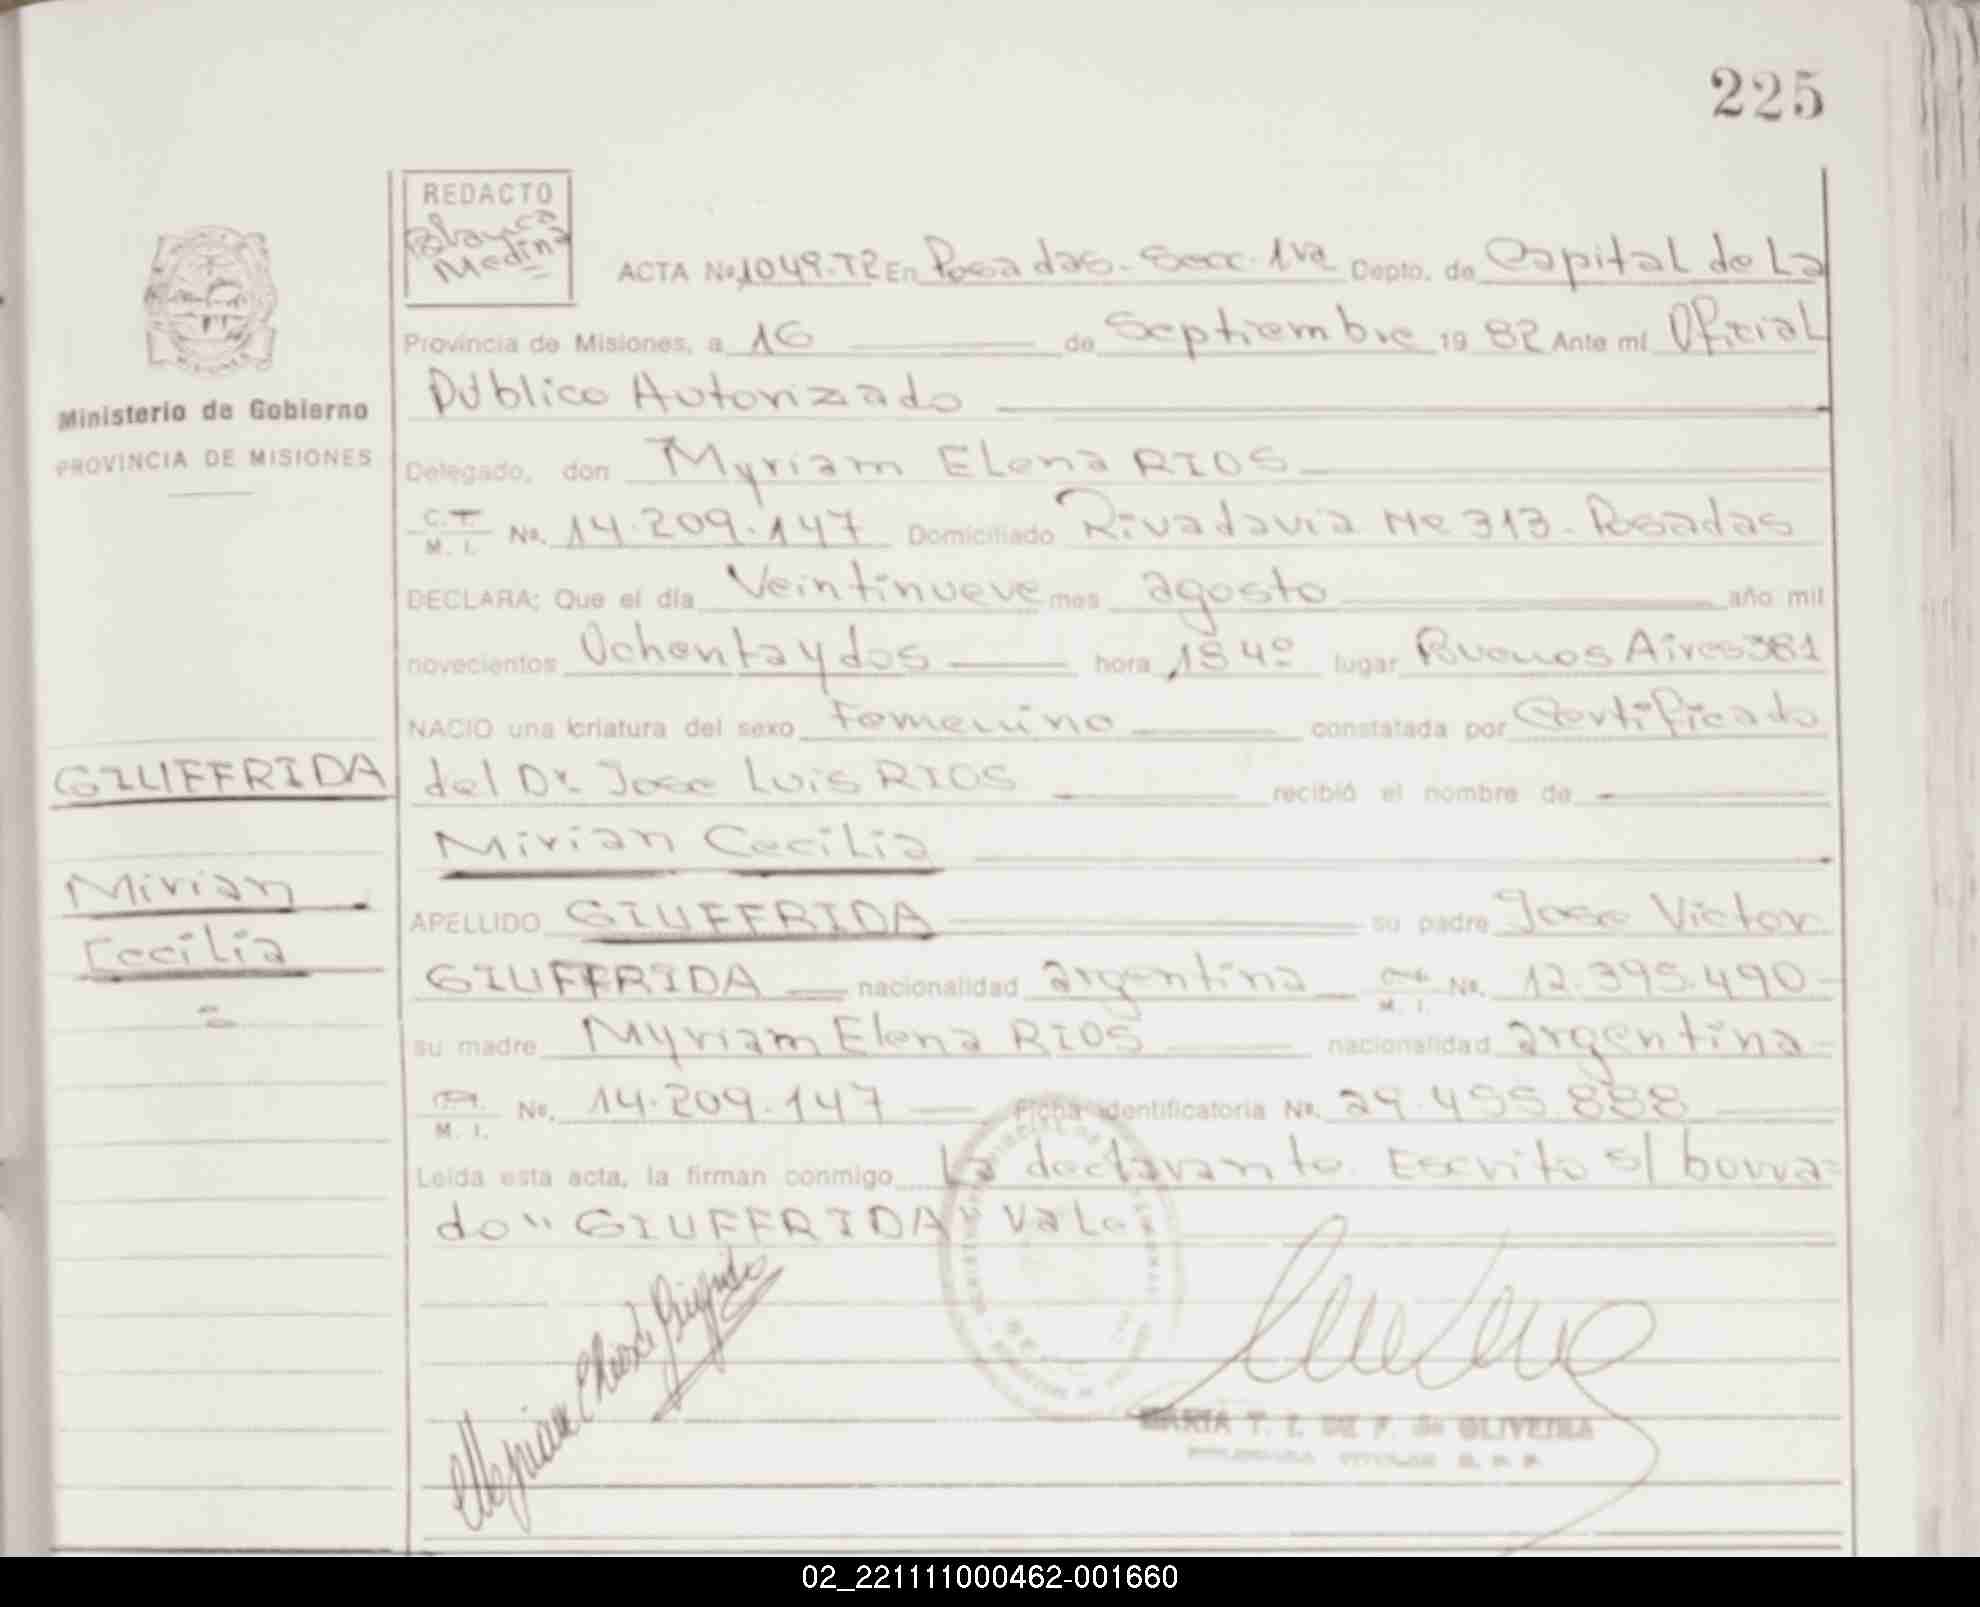 225
REDACTO
Blanca
Medina
ACTA No. 1049. T2 En Posadas. Secc. 1ra Depto. de Capital de La
Provincia de Misiones, a 16 de Septiembre 19 82 Ante mí Oficial
Público Autorizado
Ministerio de Gobierno
PROVINCIA DE MISIONES
Delegado, don Myriam Elena RIOS
C.I.
M. I. No. 14.209.147 Domiciliado Rivadavia Nº 313. Posadas
DECLARA: Que el día Veintinueve mes agosto año mil
novecientos Ochenta y dos hora lugar Buenos Aires 381
NACIO una criatura del sexo Femenino constatada por Certificado
GIUFFRIDA
del Dr. Jose Luis RIOS recibió el nombre de
Mirian Cecilia
Mirian
Cecilia
APELLIDO GIUFFRIDA su padre Jose Victor
GIUFFRIDA nacionalidad argentina M. I. No. 12.395.490
su madre Myriam Elena RIOS nacionalidad argentina
M. I. No. 14.209.147 Ficha identificatoria No. 29.455.888
Leída esta acta, la firman conmigo La declarante. Escrito s/ borra=
do "GIUFFRIDA" Vale
MARIA T. I. DE F. de OLIVEIRA
02_221111000462-001660